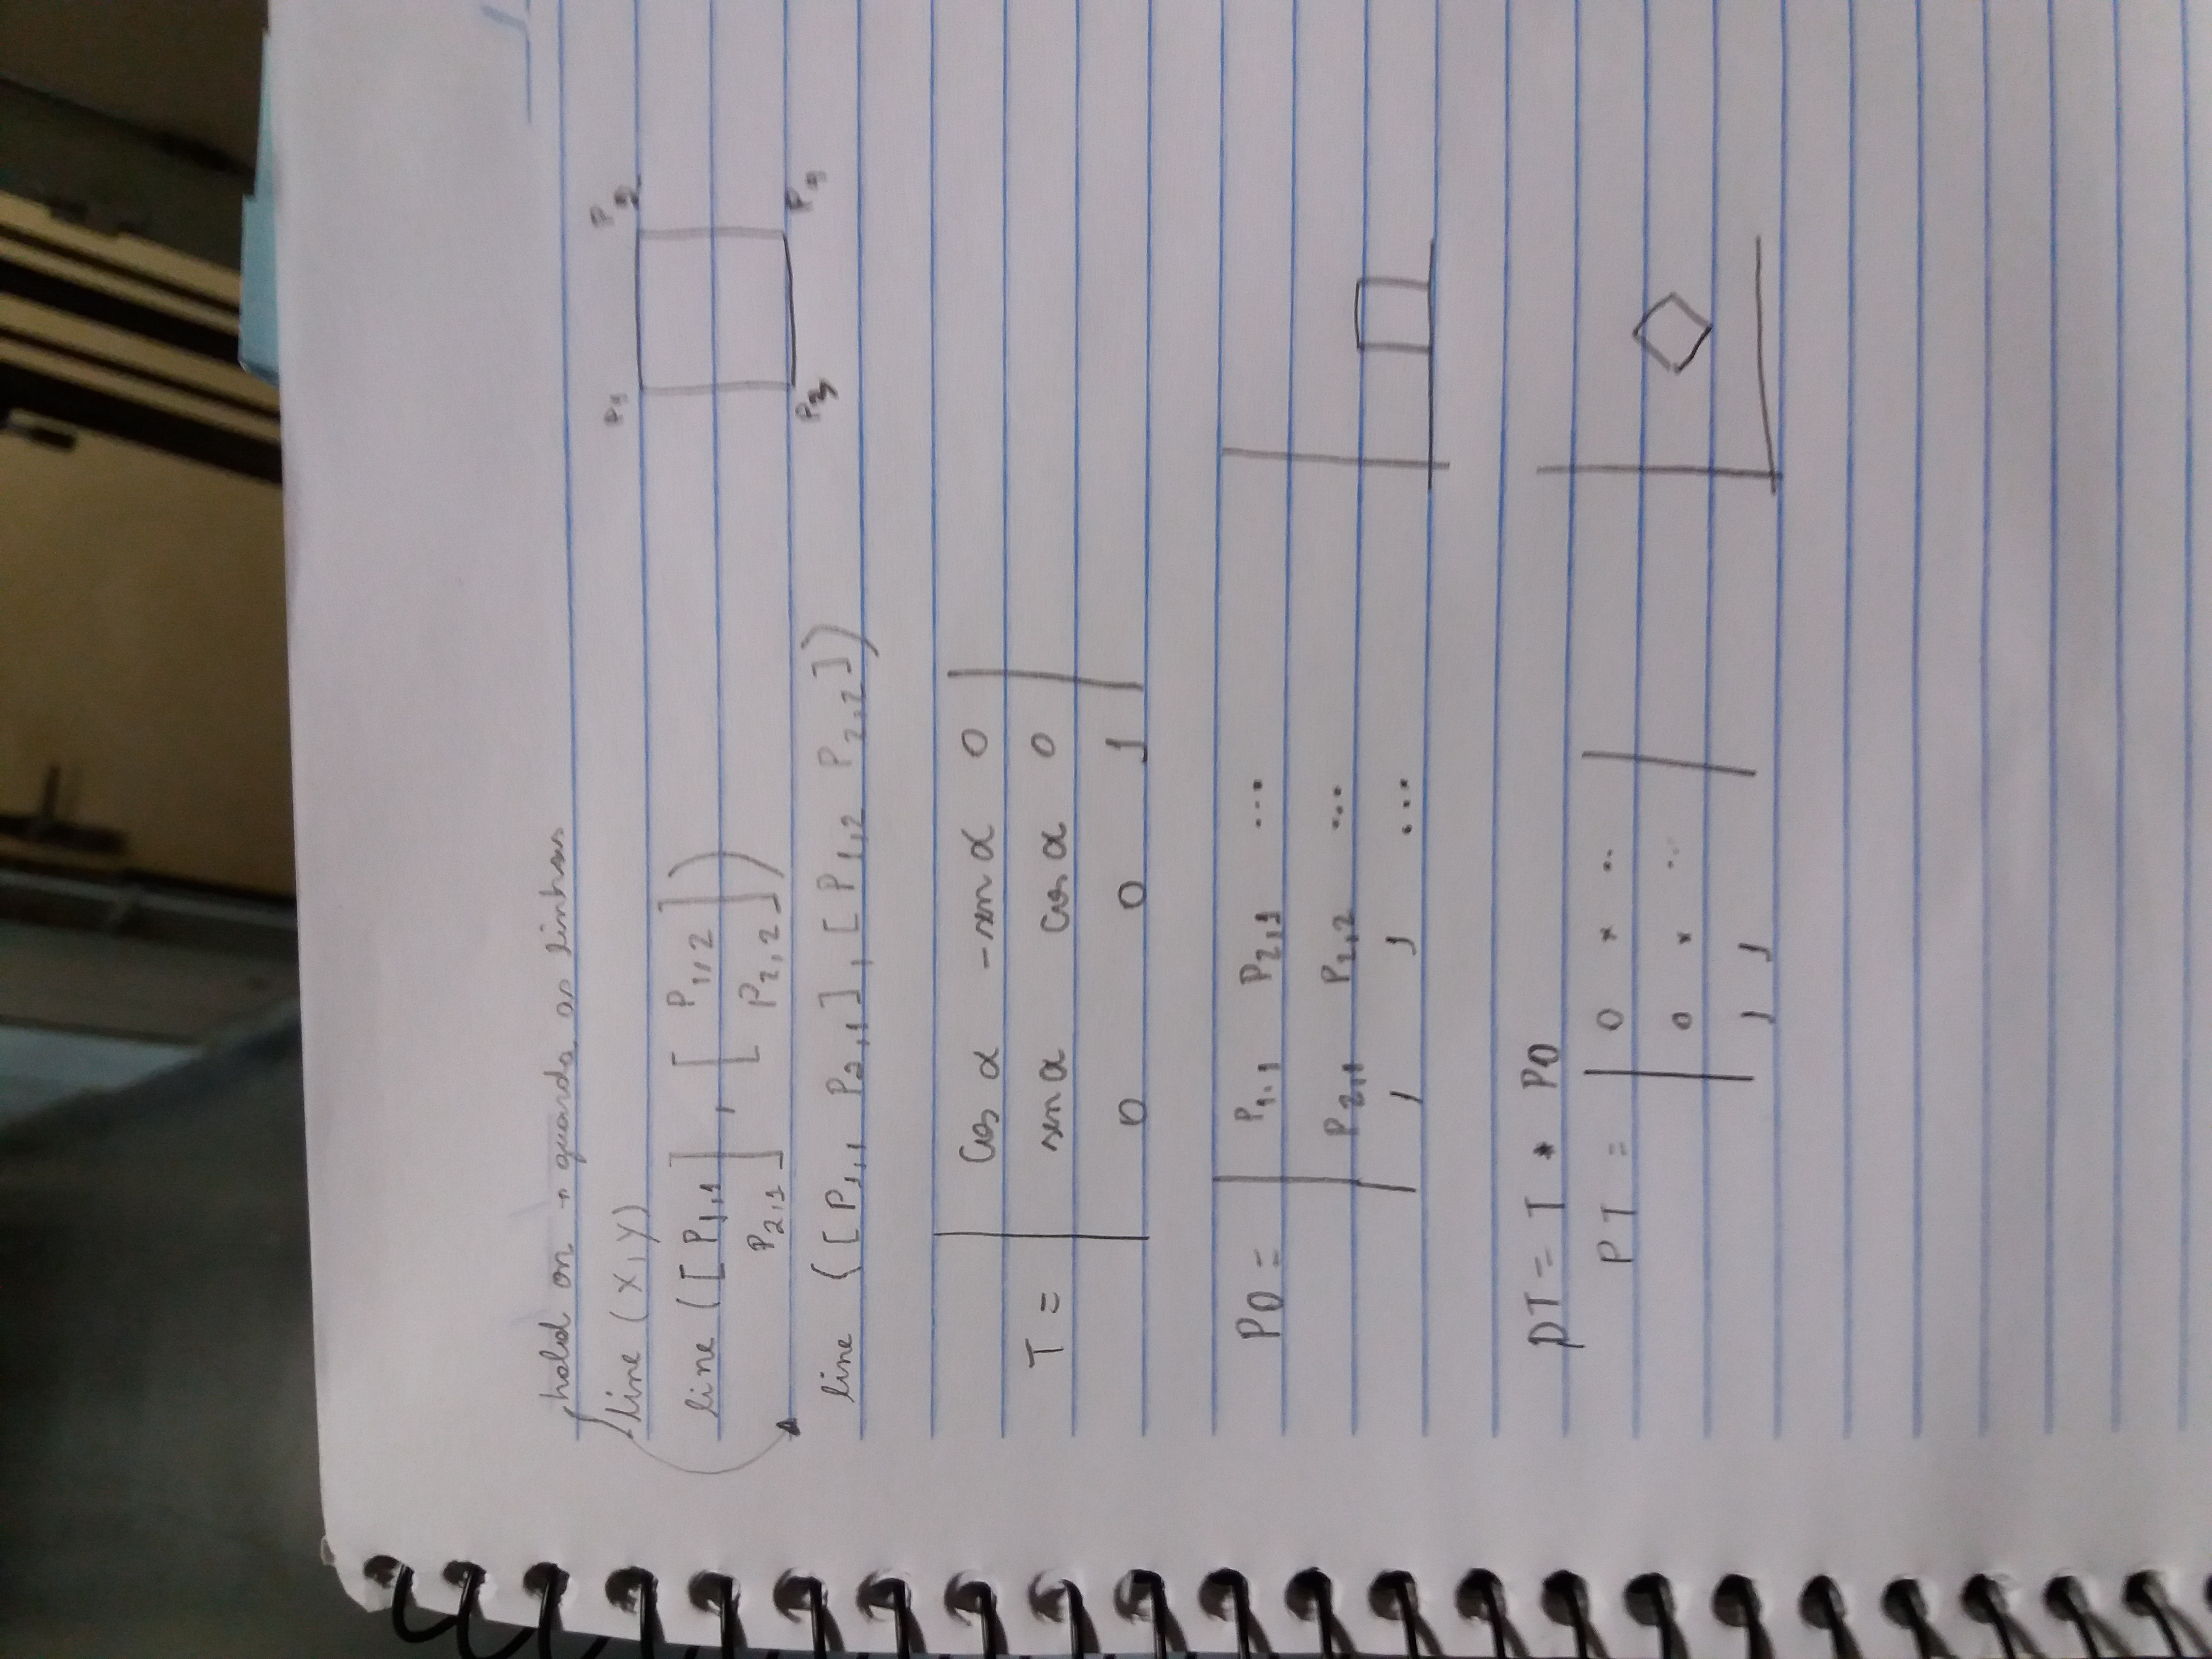 hold on → guarda as linhas
line (x, y)
P1 P2
line ([P1,1 P2,1], [P1,2 P2,2])
P3 P4
line ([P1,1 P2,1], [P1,2 P2,2])
cos α -sen α 0
T = sen α cos α 0
0 0 1
PO = P1,1 P2,1 ...
P2,1 P2,2 ...
1 1 ...
PT = T * PO
PT = 0 x ..
0 x ..
1 1